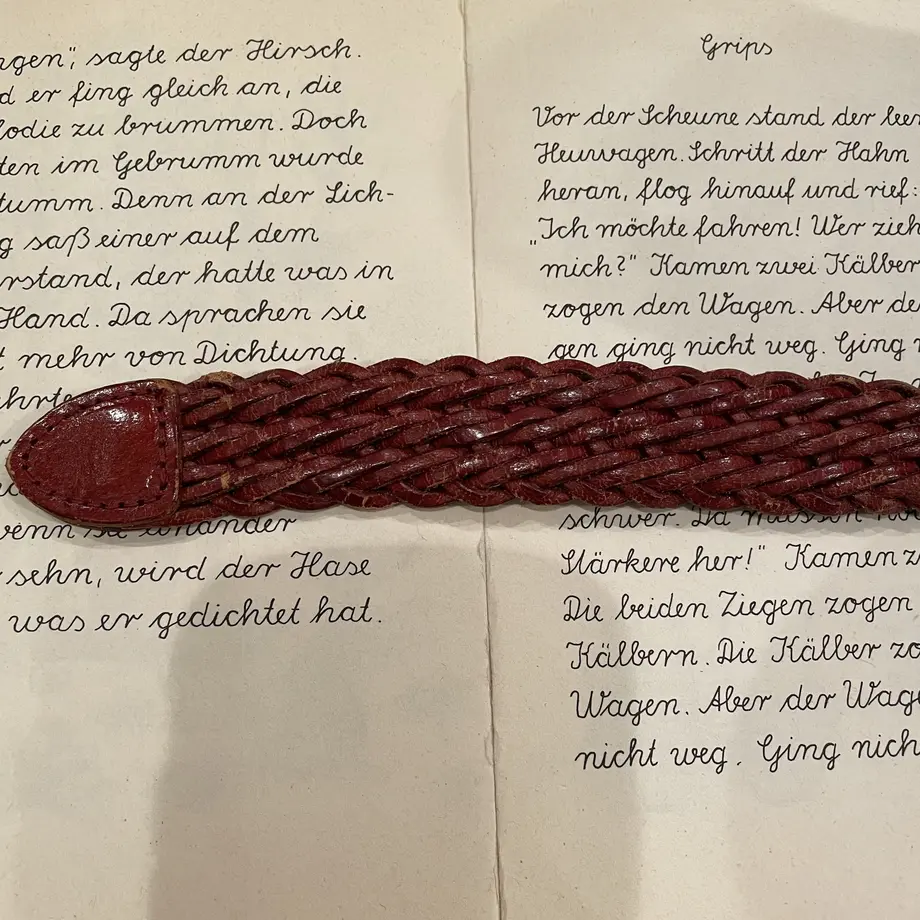 sagte der Hirsch.
er fing gleich an, die
zu brummen. Doch
im Gebrumm wurde
Denn an der Lich-
saß einer auf dem
der hatte was in
Hand. Da sprachen sie
mehr von Dichtung.
einander
sehn, wird der Hase
was er gedichtet hat.
Grips
Vor der Scheune stand der
Heuwagen. Schritt der Hahn
heran, flog hinauf und rief:
„Ich möchte fahren! Wer
mich?" Kamen zwei Kälber
zogen den Wagen. Aber
ging nicht weg. Ging
schwer. Da
Stärkere her!" Kamen
Die beiden Ziegen zogen
Kälbern. Die Kälber
Wagen. Aber der
nicht weg. Ging